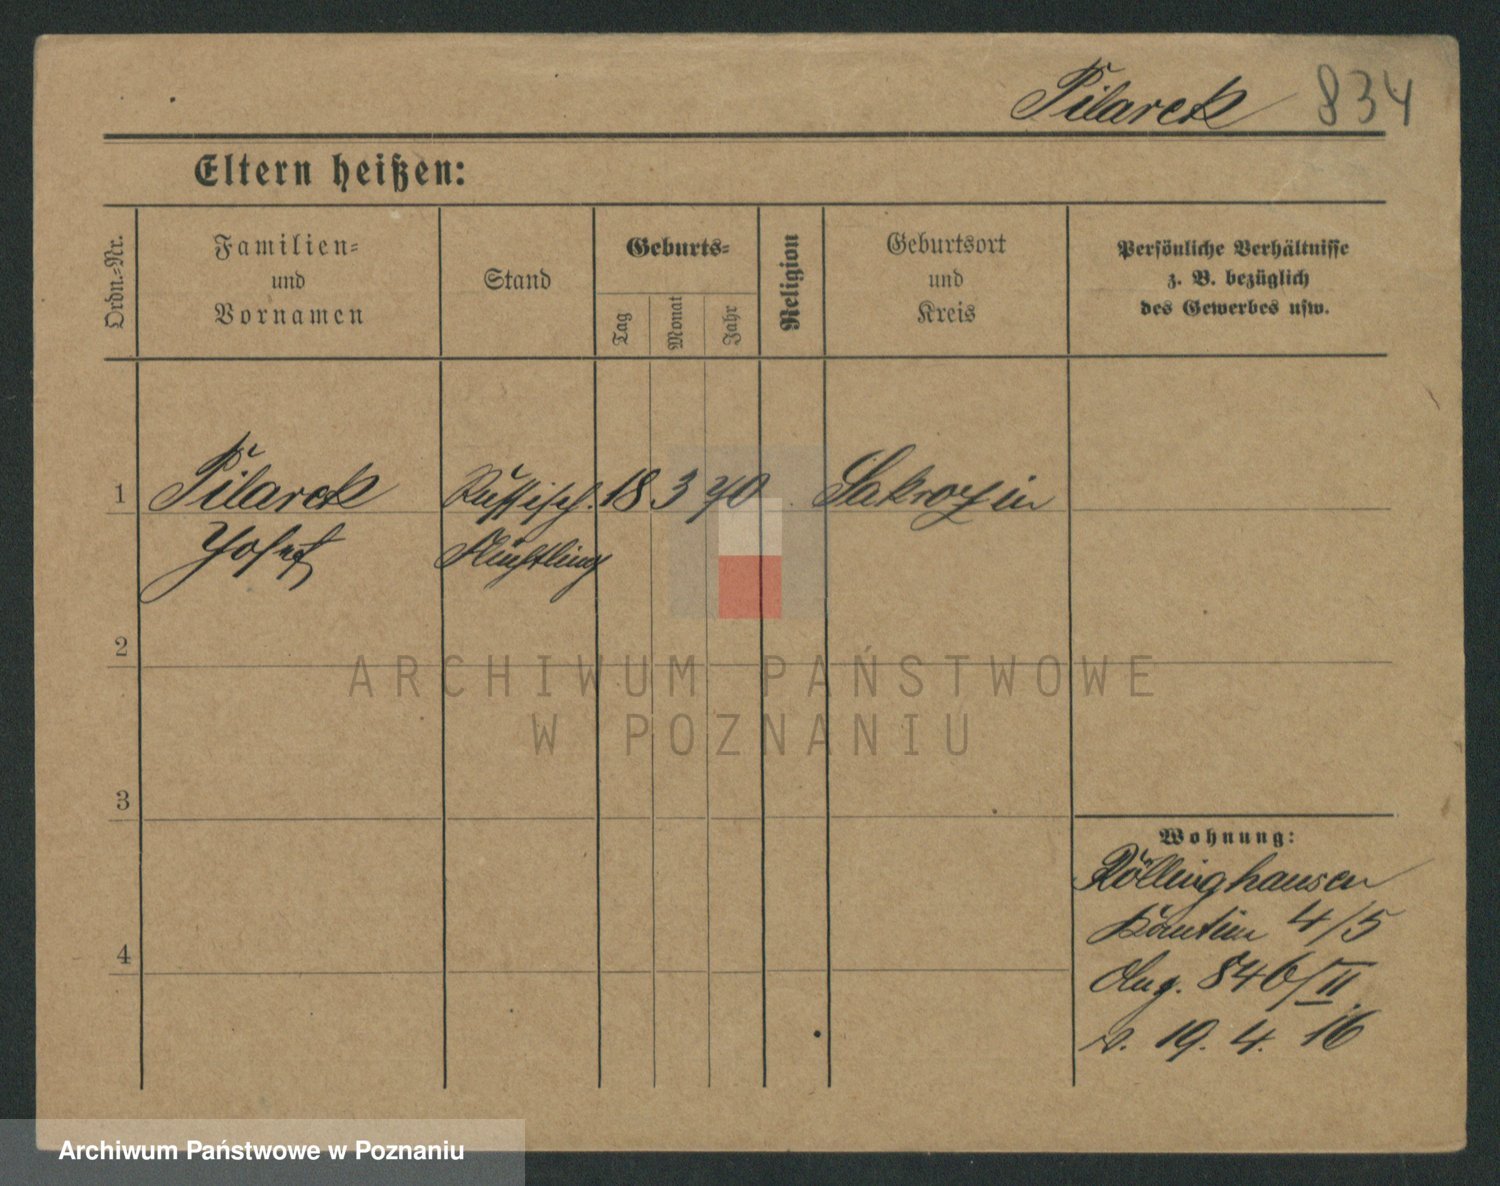 Pilarek 834
Eltern heißen:
Ordn.-Nr.
Familien-
und
Vornamen
Stand
Geburts-
Tag
Monat
Jahr
Religion
Geburtsort
und
Kreis
Persönliche Verhältnisse
z. B. bezüglich
des Gewerbes usw.
1 Pilarek Russisch. 18 3 90 Sakrozin
Josef Flüchtling
2
3
4
Wohnung:
Röllinghausen
Kantine 4/5
Ang. 846/II
v. 19. 4. 16
ARCHIWUM PAŃSTWOWE
W POZNANIU
Archiwum Państwowe w Poznaniu